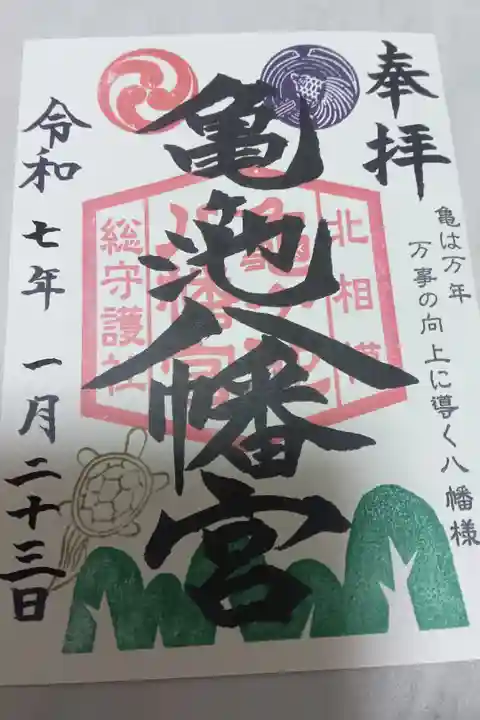 奉拝
亀は万年
万事の向上に導く八幡様
北相模
総守護社
亀池八幡宮
令和七年一月二十三日